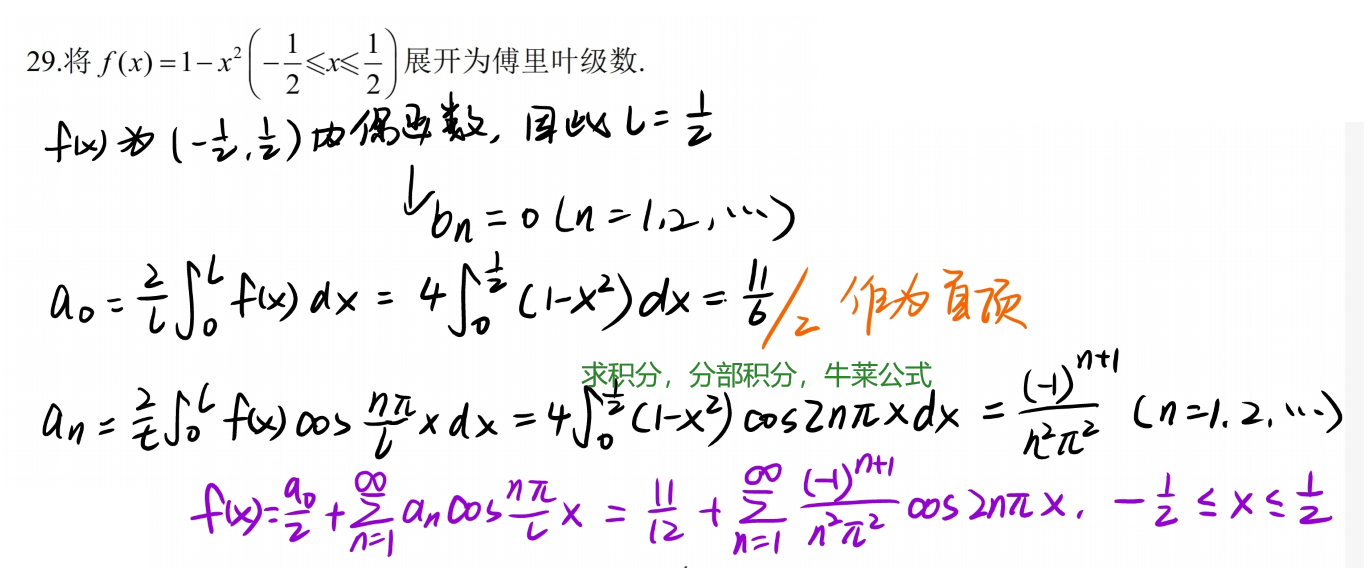 29.将 f(x)=1-x²(-1/2≤x≤1/2)展开为傅里叶级数.
f(x)为(-1/2,1/2)内偶函数,因此 L=1/2
↓ bn=0(n=1,2,…)
a₀=2/L∫₀ᴸ f(x)dx=4∫₀^(1/2)(1-x²)dx=11/6 /2 作为首项
求积分，分部积分，牛莱公式
an=2/L∫₀ᴸ f(x)cos nπ/L x dx=4∫₀^(1/2)(1-x²)cos2nπxdx=(-1)^(n+1)/n²π² (n=1.2.…)
f(x)=a₀/2+∑_(n=1)^∞ an cos nπ/L x=11/12+∑_(n=1)^∞ (-1)^(n+1)/n²π² cos2nπx, -1/2≤x≤1/2